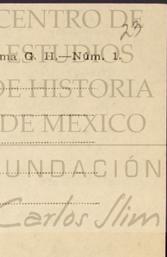 CENTRO DE
23
ESTUDIOS
ma G. H.—Núm. 1.
DE HISTORIA
DE MEXICO
FUNDACIÓN
Carlos Slim